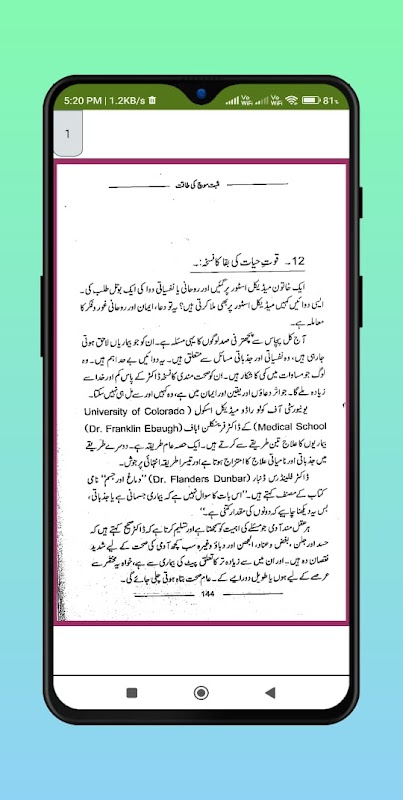 5:20 PM | 1.2KB/s
Vo WiFi Vo WiFi 81%
1
مثبت سوچ کی طاقت
12۔ قوتِ حیات کی بقا کا نسخہ:۔
ایک خاتون میڈیکل اسٹور پر گئیں اور روحانی یا نفسیاتی دوا کی ایک بوتل طلب کی۔
ایسی دوائیں کہیں میڈیکل اسٹور پر بھی ملا کرتی ہیں؟ یہ تو دعا، ایمان اور روحانی غور و فکر کا
معاملہ ہے۔
آج کل پچاس سے پچھتر فی صد لوگوں کا یہی مسئلہ ہے۔ ان کو جو بیماریاں لاحق ہوتی
جا رہی ہیں، وہ نفسیاتی اور جذباتی مسائل سے متعلق ہیں۔ یہ دوائیں بے حد اہم ہیں۔ وہ
لوگ جو مساوات میں کمی کا شکار ہیں۔ ان کو صحت مندی کا نسخہ ڈاکٹر کے پاس کم اور خدا سے
زیادہ ملے گا۔ جو اثر دعاؤں اور یقین اور ایمان میں ہے، وہ کہیں اور سے مل ہی نہیں سکتا۔
یونیورسٹی آف کولو راڈو میڈیکل اسکول (University of Colorado
Medical School) کے ڈاکٹر فرینکلن ایباف (Dr. Franklin Ebaugh)
بیماریوں کا علاج تین طریقے سے کرتے ہیں۔ ایک حصہ عام طریقہ ہے۔ دوسرے طریقے
میں جذباتی اور نامیاتی علاج کا امتزاج ہوتا ہے اور تیسرا طریقہ انتہائی پر جوش۔
ڈاکٹر فلینڈرس ڈنبار (Dr. Flanders Dunbar) ''دماغ اور جسم'' نامی
کتاب کے مصنف کہتے ہیں۔ ''اس بات کا سوال نہیں ہے کہ بیماری جسمانی ہے یا جذباتی،
بس یہ دیکھنا چاہیے کہ دونوں کی مقدار کتنی ہے۔''
ہر عقل مند آدمی جو مسئلے کی اہمیت کو سمجھتا ہے اور تسلیم کرتا ہے کہ ڈاکٹر صحیح کہتے ہیں کہ
حسد اور جلن، بغض و عناد، الجھن اور دباؤ وغیرہ سب کچھ آدمی کی صحت کے لیے شدید
نقصان دہ ہیں۔ اور ان میں سے زیادہ تر کا تعلق پیٹ کی بیماری سے ہے، خواہ یہ مختصر سے
عرصے کے لیے ہوں یا طویل دورانیے کے۔ عام صحت تباہ ہوتی چلی جائے گی۔
144